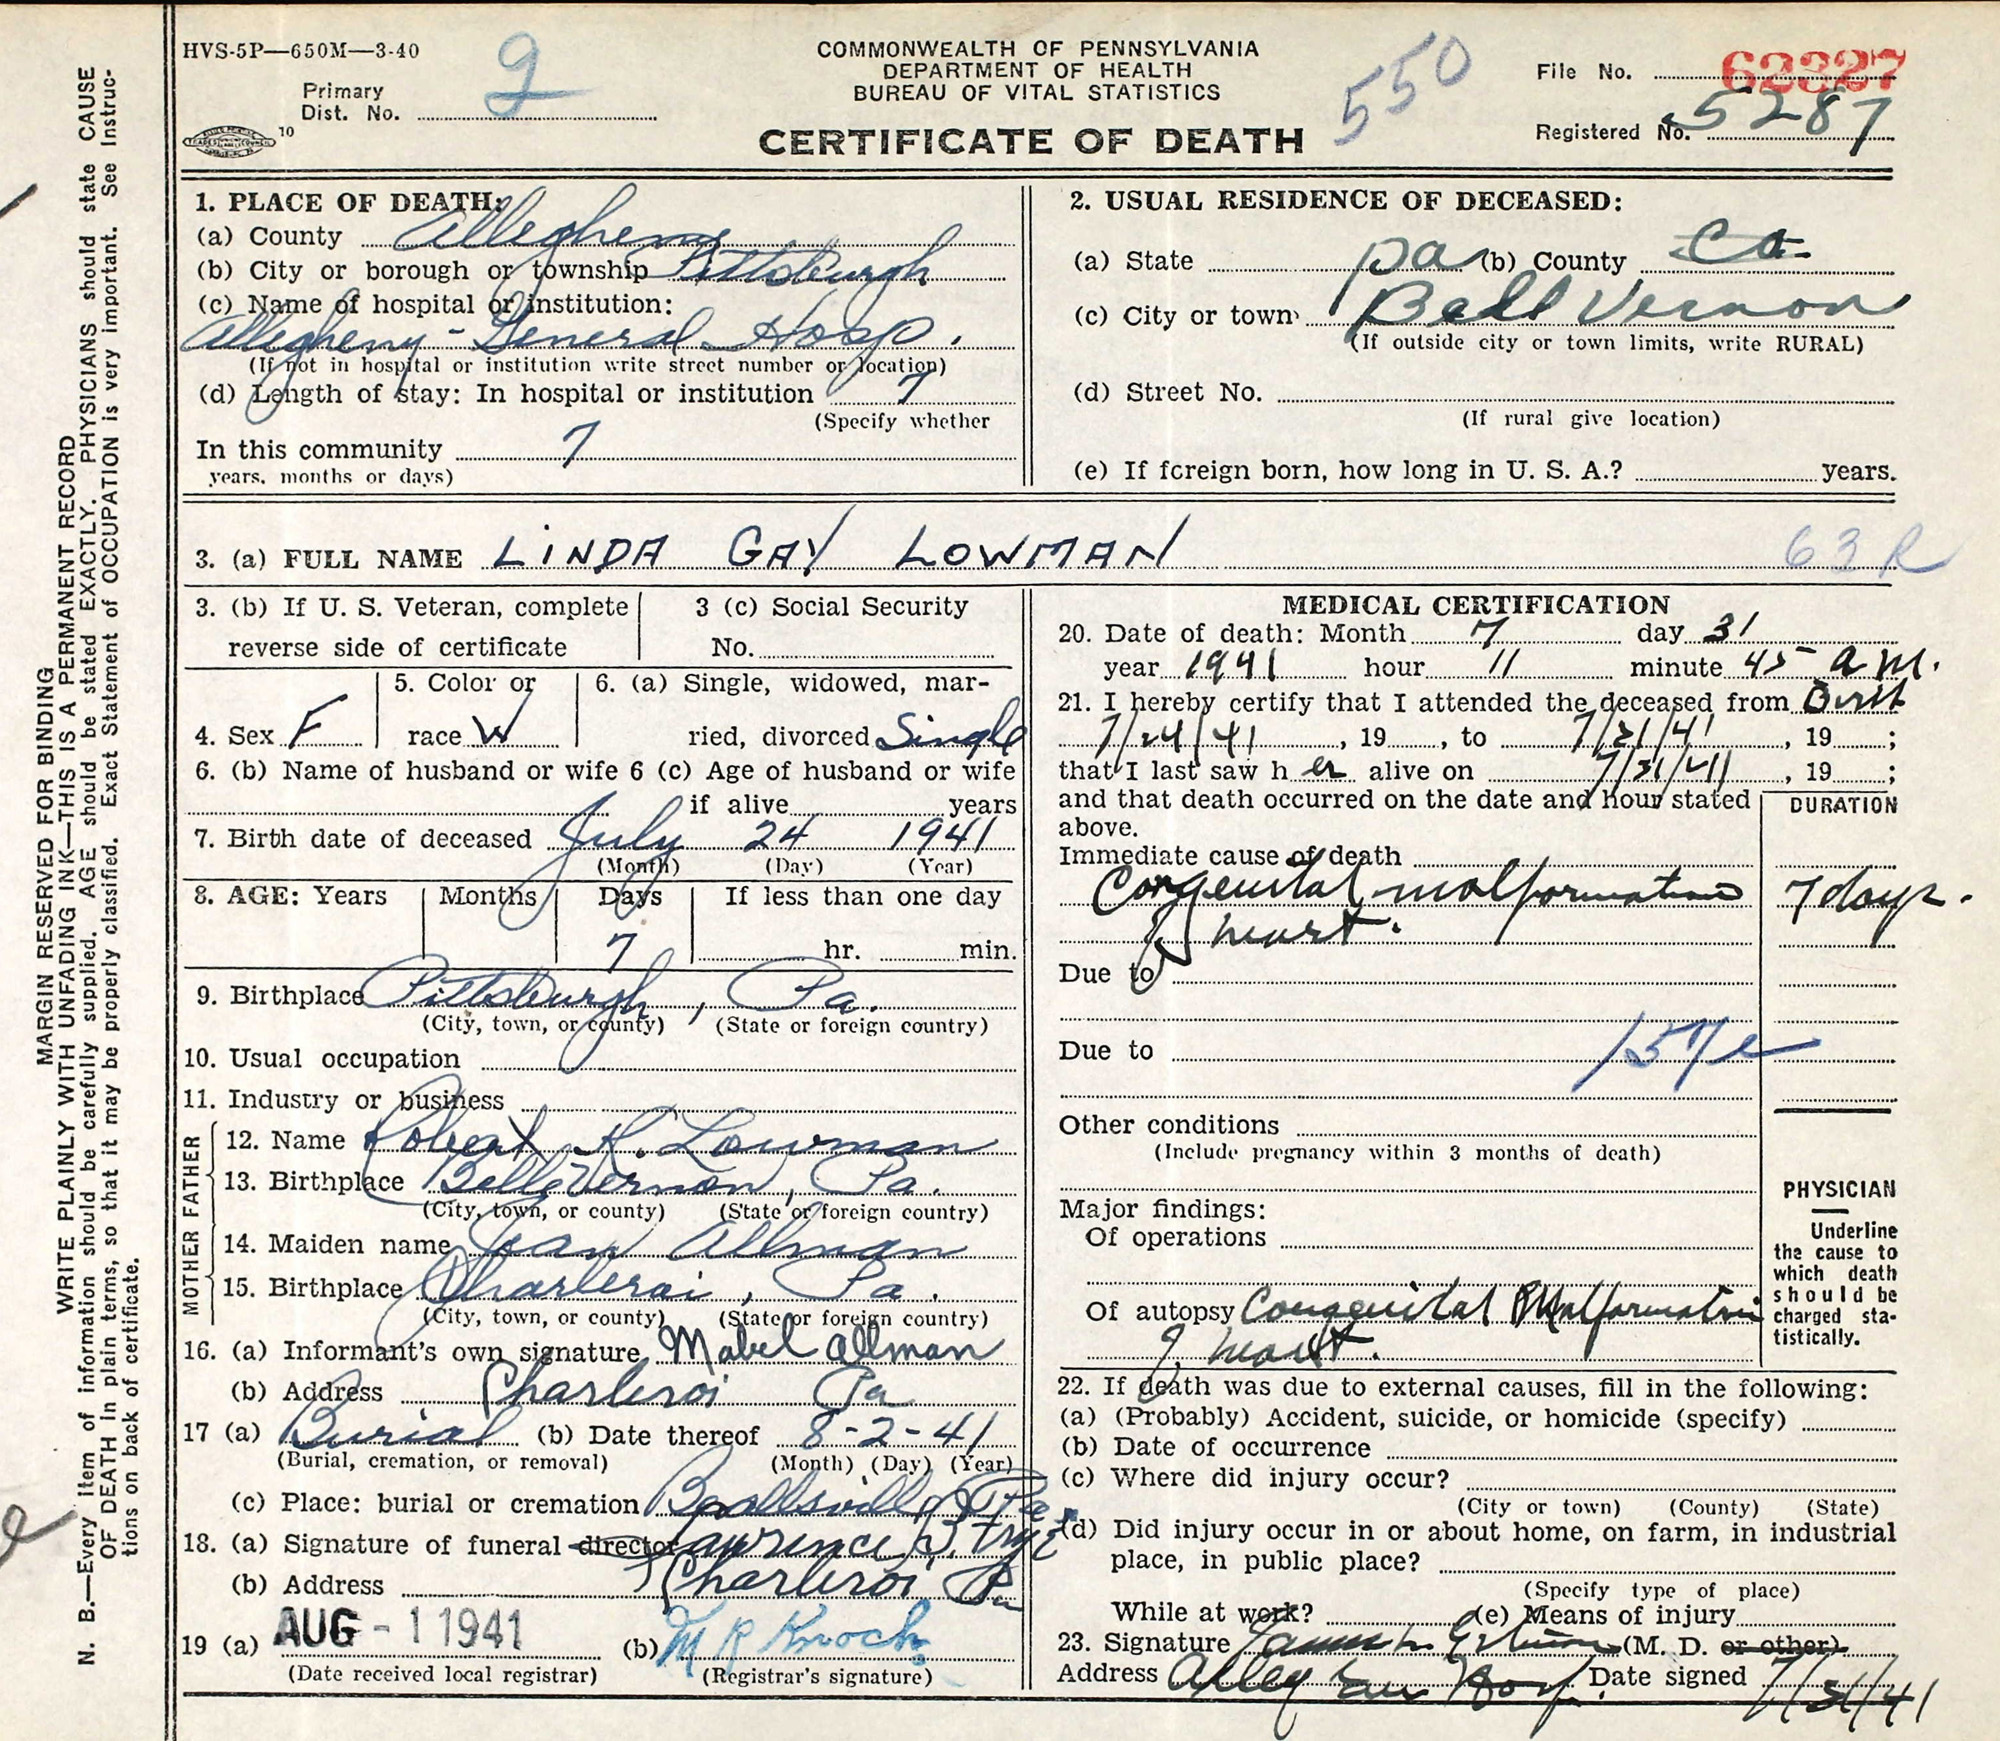 HVS-5P—650M—3-40
Primary
Dist. No. 9
COMMONWEALTH OF PENNSYLVANIA
DEPARTMENT OF HEALTH
BUREAU OF VITAL STATISTICS
CERTIFICATE OF DEATH
550
File No. 62327
Registered No. 5287
10
MARGIN RESERVED FOR BINDING
WRITE PLAINLY WITH UNFADING INK—THIS IS A PERMANENT RECORD
N. B.—Every item of information should be carefully supplied. AGE should be stated EXACTLY. PHYSICIANS should state CAUSE
OF DEATH in plain terms, so that it may be properly classified. Exact Statement of OCCUPATION is very important. See Instruc-
tions on back of certificate.
1. PLACE OF DEATH:
(a) County Allegheny
(b) City or borough or township Pittsburgh
(c) Name of hospital or institution:
Allegheny - General Hosp.
(If not in hospital or institution write street number or location)
(d) Length of stay: In hospital or institution 7
(Specify whether
In this community 7
years, months or days)
2. USUAL RESIDENCE OF DECEASED:
(a) State Pa (b) County Co
(c) City or town Bell Vernon
(If outside city or town limits, write RURAL)
(d) Street No.
(If rural give location)
(e) If foreign born, how long in U. S. A.? years.
3. (a) FULL NAME LINDA GAY LOWMAN
63 R
3. (b) If U. S. Veteran, complete
reverse side of certificate
3 (c) Social Security
No.
4. Sex F
5. Color or
race W
6. (a) Single, widowed, mar-
ried, divorced Single
6. (b) Name of husband or wife 6 (c) Age of husband or wife
if alive years
7. Birth date of deceased July 24 1941
(Month) (Day) (Year)
8. AGE: Years Months Days If less than one day
7 hr. min.
9. Birthplace Pittsburgh, Pa.
(City, town, or county) (State or foreign country)
10. Usual occupation
11. Industry or business
FATHER
12. Name Robert K. Lowman
13. Birthplace Belle Vernon, Pa.
(City, town, or county) (State or foreign country)
MOTHER
14. Maiden name Jean Allman
15. Birthplace Charleroi, Pa.
(City, town, or county) (State or foreign country)
16. (a) Informant's own signature Mabel Allman
(b) Address Charleroi Pa
17 (a) Burial (b) Date thereof 8-2-41
(Burial, cremation, or removal) (Month) (Day) (Year)
(c) Place: burial or cremation Beallsville Pa
18. (a) Signature of funeral director Lawrence S. Frye
(b) Address Charleroi Pa
19 (a) AUG - 1 1941 (b) M R Knoch
(Date received local registrar) (Registrar's signature)
MEDICAL CERTIFICATION
20. Date of death: Month 7 day 31
year 1941 hour 11 minute 45 a m.
21. I hereby certify that I attended the deceased from Birth
7/24/41, 19 , to 7/31/41, 19 ;
that I last saw h er alive on 7/31/41, 19 ;
and that death occurred on the date and hour stated
above.
DURATION
Immediate cause of death
Congenital malformation 7 days.
of heart.
Due to
Due to
157e
Other conditions
(Include pregnancy within 3 months of death)
Major findings:
Of operations
Of autopsy Congenital Malformation
of heart.
PHYSICIAN
Underline
the cause to
which death
should be
charged sta-
tistically.
22. If death was due to external causes, fill in the following:
(a) (Probably) Accident, suicide, or homicide (specify)
(b) Date of occurrence
(c) Where did injury occur?
(City or town) (County) (State)
(d) Did injury occur in or about home, on farm, in industrial
place, in public place?
(Specify type of place)
While at work? (e) Means of injury
23. Signature (M. D. or other)
Address Alleg Gen Hosp. Date signed 7/31/41